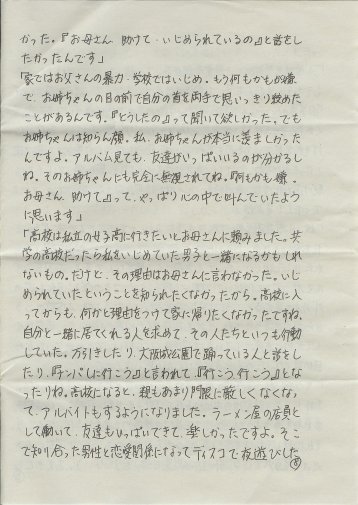 かった。『お母さん 助けて・いじめられているの』と話をし
たかったんです」
「家ではお父さんの暴力・学校ではいじめ。もう何もかもが嫌
で、お姉ちゃんの目の前で自分の首を両手で思いっきり絞めた
ことがあるんです。『どうしたの』って聞いて欲しかった。でも
お姉ちゃんは知らん顔。私、お姉ちゃんが本当に羨ましかった
んですよ。アルバム見ても、友達がいっぱいいるのが分かるし
ね。そのお姉ちゃんにも完全に無視されてね。『何もかも嫌。
お母さん、助けて』って、やっぱり心の中で叫んでいたよう
に思います」
「高校は私立の女子高に行きたいとお母さんに頼みました。共
学の高校だったら私をいじめていた男子と一緒になるかもしれ
ないもの。だけど、その理由はお母さんに言わなかった。いじ
められていたということを知られたくなかったから。高校に入
ってからも、何かと理由をつけて家に帰りたくなかったですね。
自分と一緒に居てくれる人を求めて、その人たちといつも行動
していた。万引きしたり、大阪城公園で踊っている人と話をし
たり、『ナンパしに行こう』と言われて、『行こう、行こう』とな
ったりね。高校になると、親もあまり門限に厳しくなくなっ
て、アルバイトもするようになりました。ラーメン屋の店員と
して働いて、友達もいっぱいできて、楽しかったですよ。そこ
で知り合った男性と恋愛関係になってディスコで夜遊びした